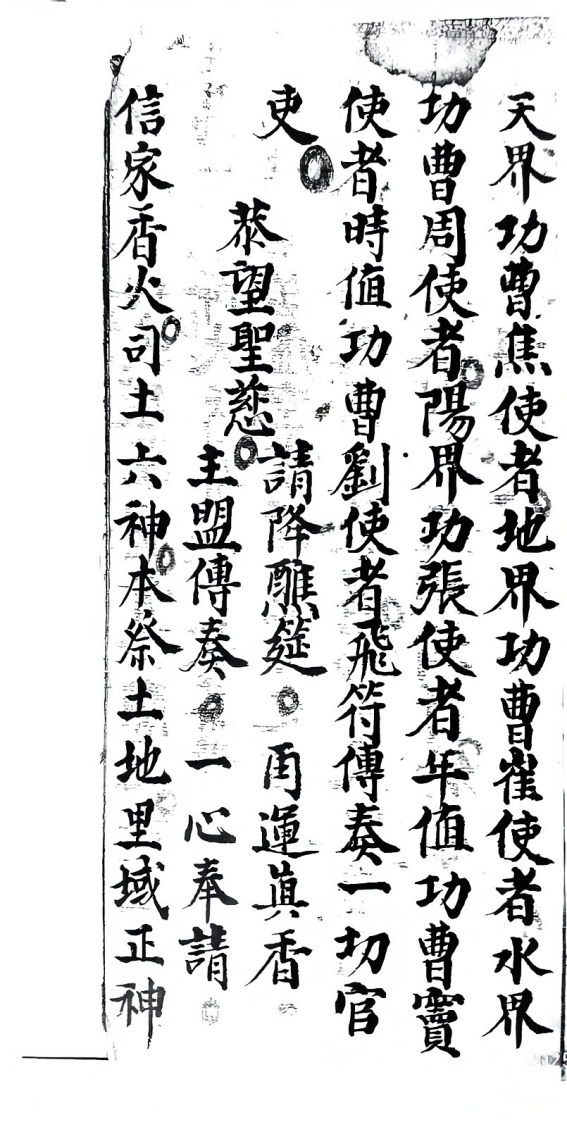 天界功曹焦使者地界功曹崔使者水界
功曹周使者陽界功張使者年值功曹竇
使者時值功曹劉使者飛符傳奏一切官
吏
恭望聖慈
請降醮筵
主盟傳奏
再運眞香
一心奉請
信家香火司土六神本祭土地里域正神